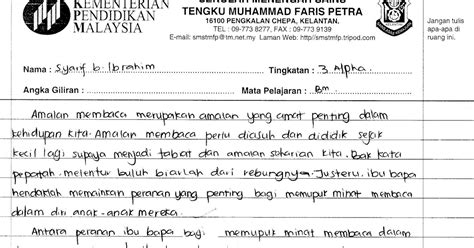 KEMENTERIAN
PENDIDIKAN
MALAYSIA
SEKOLAH MENENGAH SAINS
TENGKU MUHAMMAD FARIS PETRA
16100 PENGKALAN CHEPA, KELANTAN.
TEL : 09-773 8277, FAX : 09-773 9139
E-mail: smstmfp@tm.net.my Laman Web: http://smstmfp.tripod.com
Jangan tulis
apa-apa di
ruang ini.
Nama : Syarif b. Ibrahim Tingkatan : 3 Alpha
Angka Giliran : Mata Pelajaran : BM
Amalan membaca merupakan amalan yang amat penting dalam
kehidupan kita. Amalan membaca perlu diasuh dan dididik sejak
kecil lagi supaya menjadi tabiat dan amalan seharian kita. Bak kata
pepatah, melentur buluh biarlah dari rebungnya. Justeru, ibu bapa
hendaklah memainkan peranan yang penting bagi memupuk minat membaca
dalam diri anak-anak mereka.
Antara peranan ibu bapa bagi memupuk minat membaca dalam